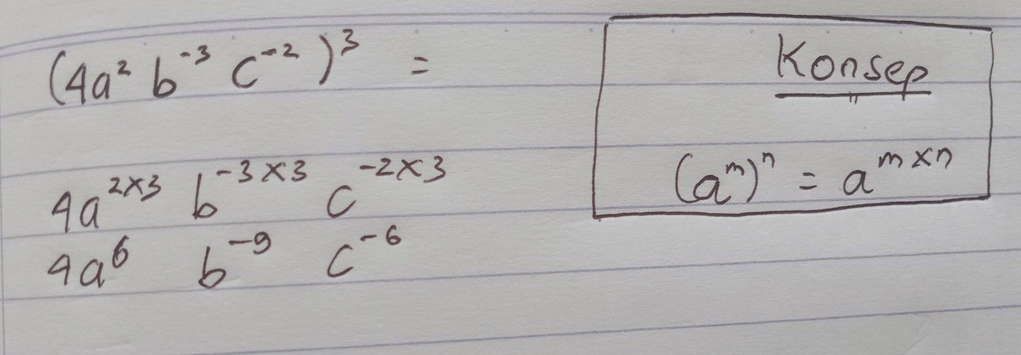 (4a² b⁻³ c⁻²)³ =
4a²ˣ³ b⁻³ˣ³ c⁻²ˣ³
4a⁶ b⁻⁹ c⁻⁶
Konsep
(aᵐ)ⁿ = aᵐˣⁿ